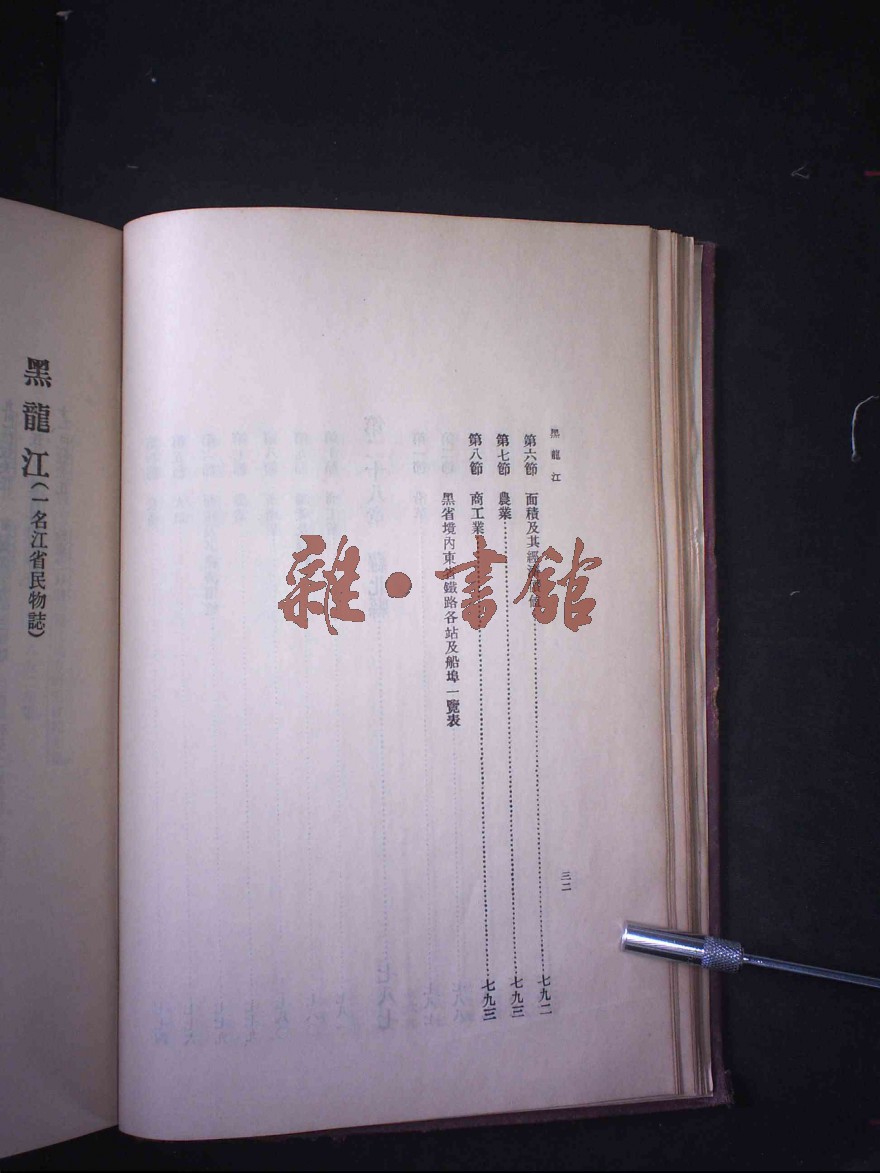 黑龍江
第六節　面積及其經濟價值……七九二
第七節　農業……七九三
第八節　商工業……七九三
黑省境內東省鐵路各站及船埠一覽表
三二
黑龍江(一名江省民物誌)
雜・書館